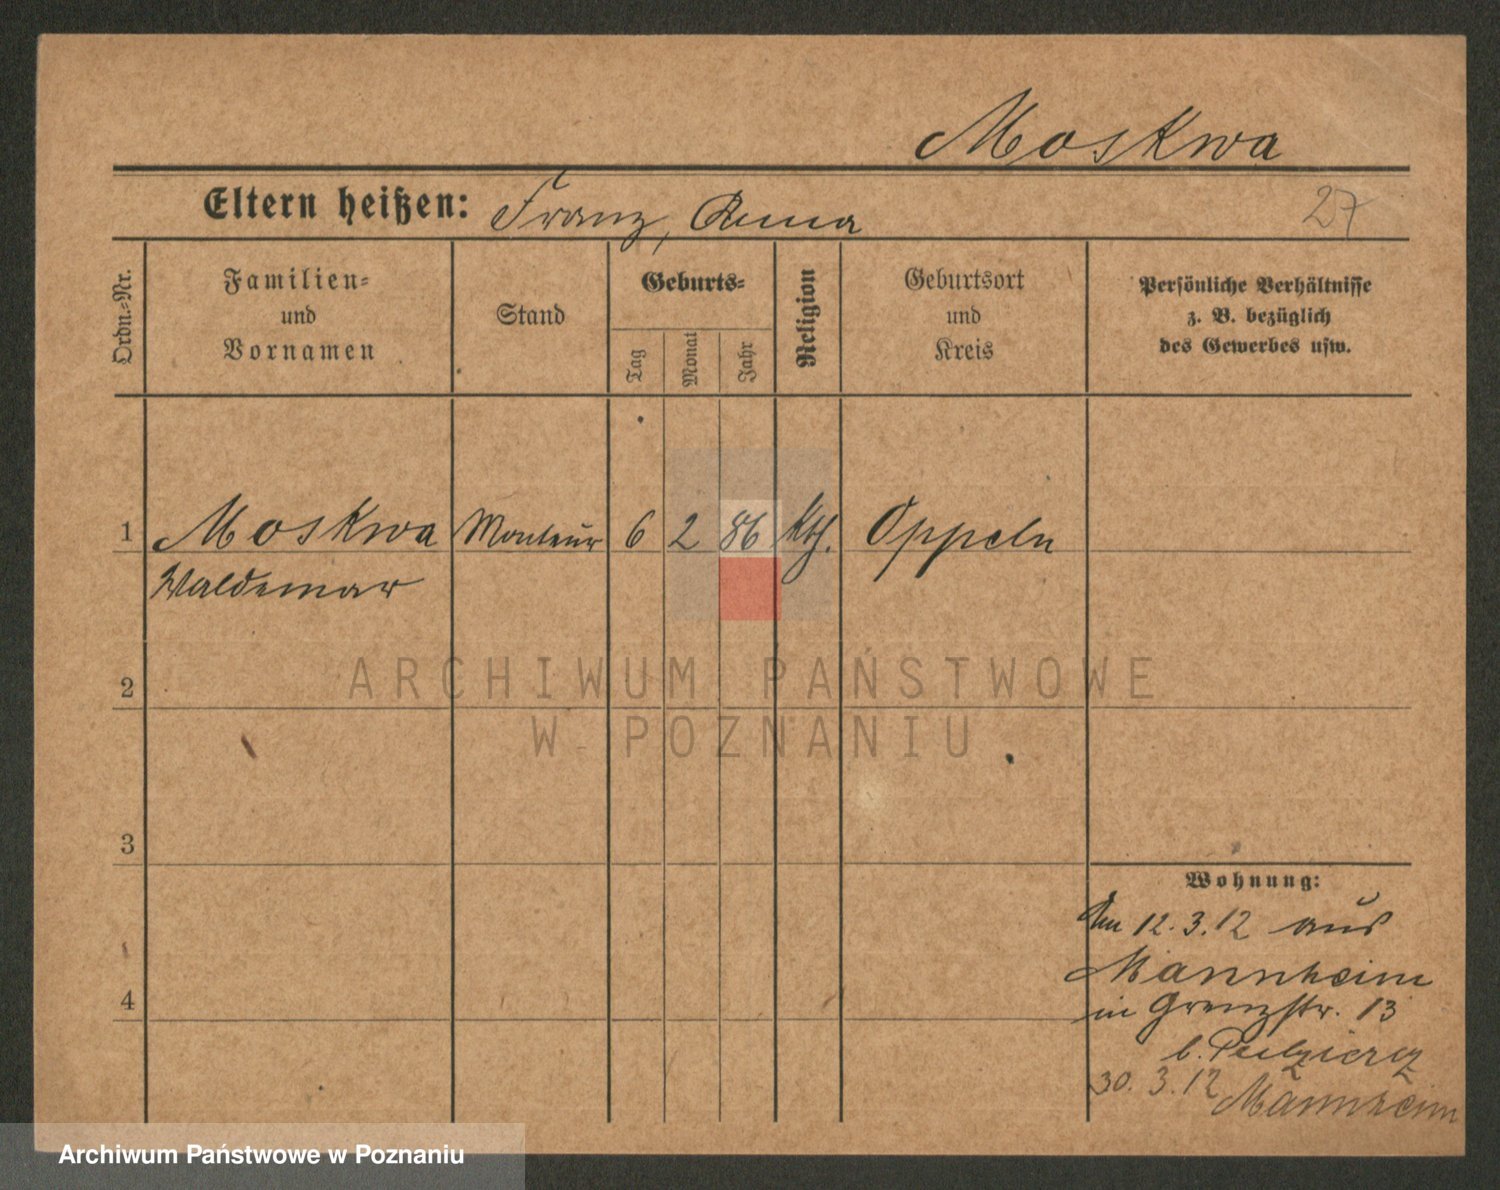 Moskwa
Eltern heißen: Franz, Anna
27
Ordn.-Nr.
Familien-
und
Vornamen
Stand
Geburts-
Tag
Monat
Jahr
Religion
Geburtsort
und
Kreis
Persönliche Verhältnisse
z. B. bezüglich
des Gewerbes usw.
1 Moskwa Monteur 6 2 86 Kth. Oppeln
Waldemar
ARCHIWUM PAŃSTWOWE
W POZNANIU
2
3
4
Wohnung:
Am 12.3.12 aus
Mannheim
in Grenzstr. 13
b.
30.3.12 Mannheim
Archiwum Państwowe w Poznaniu